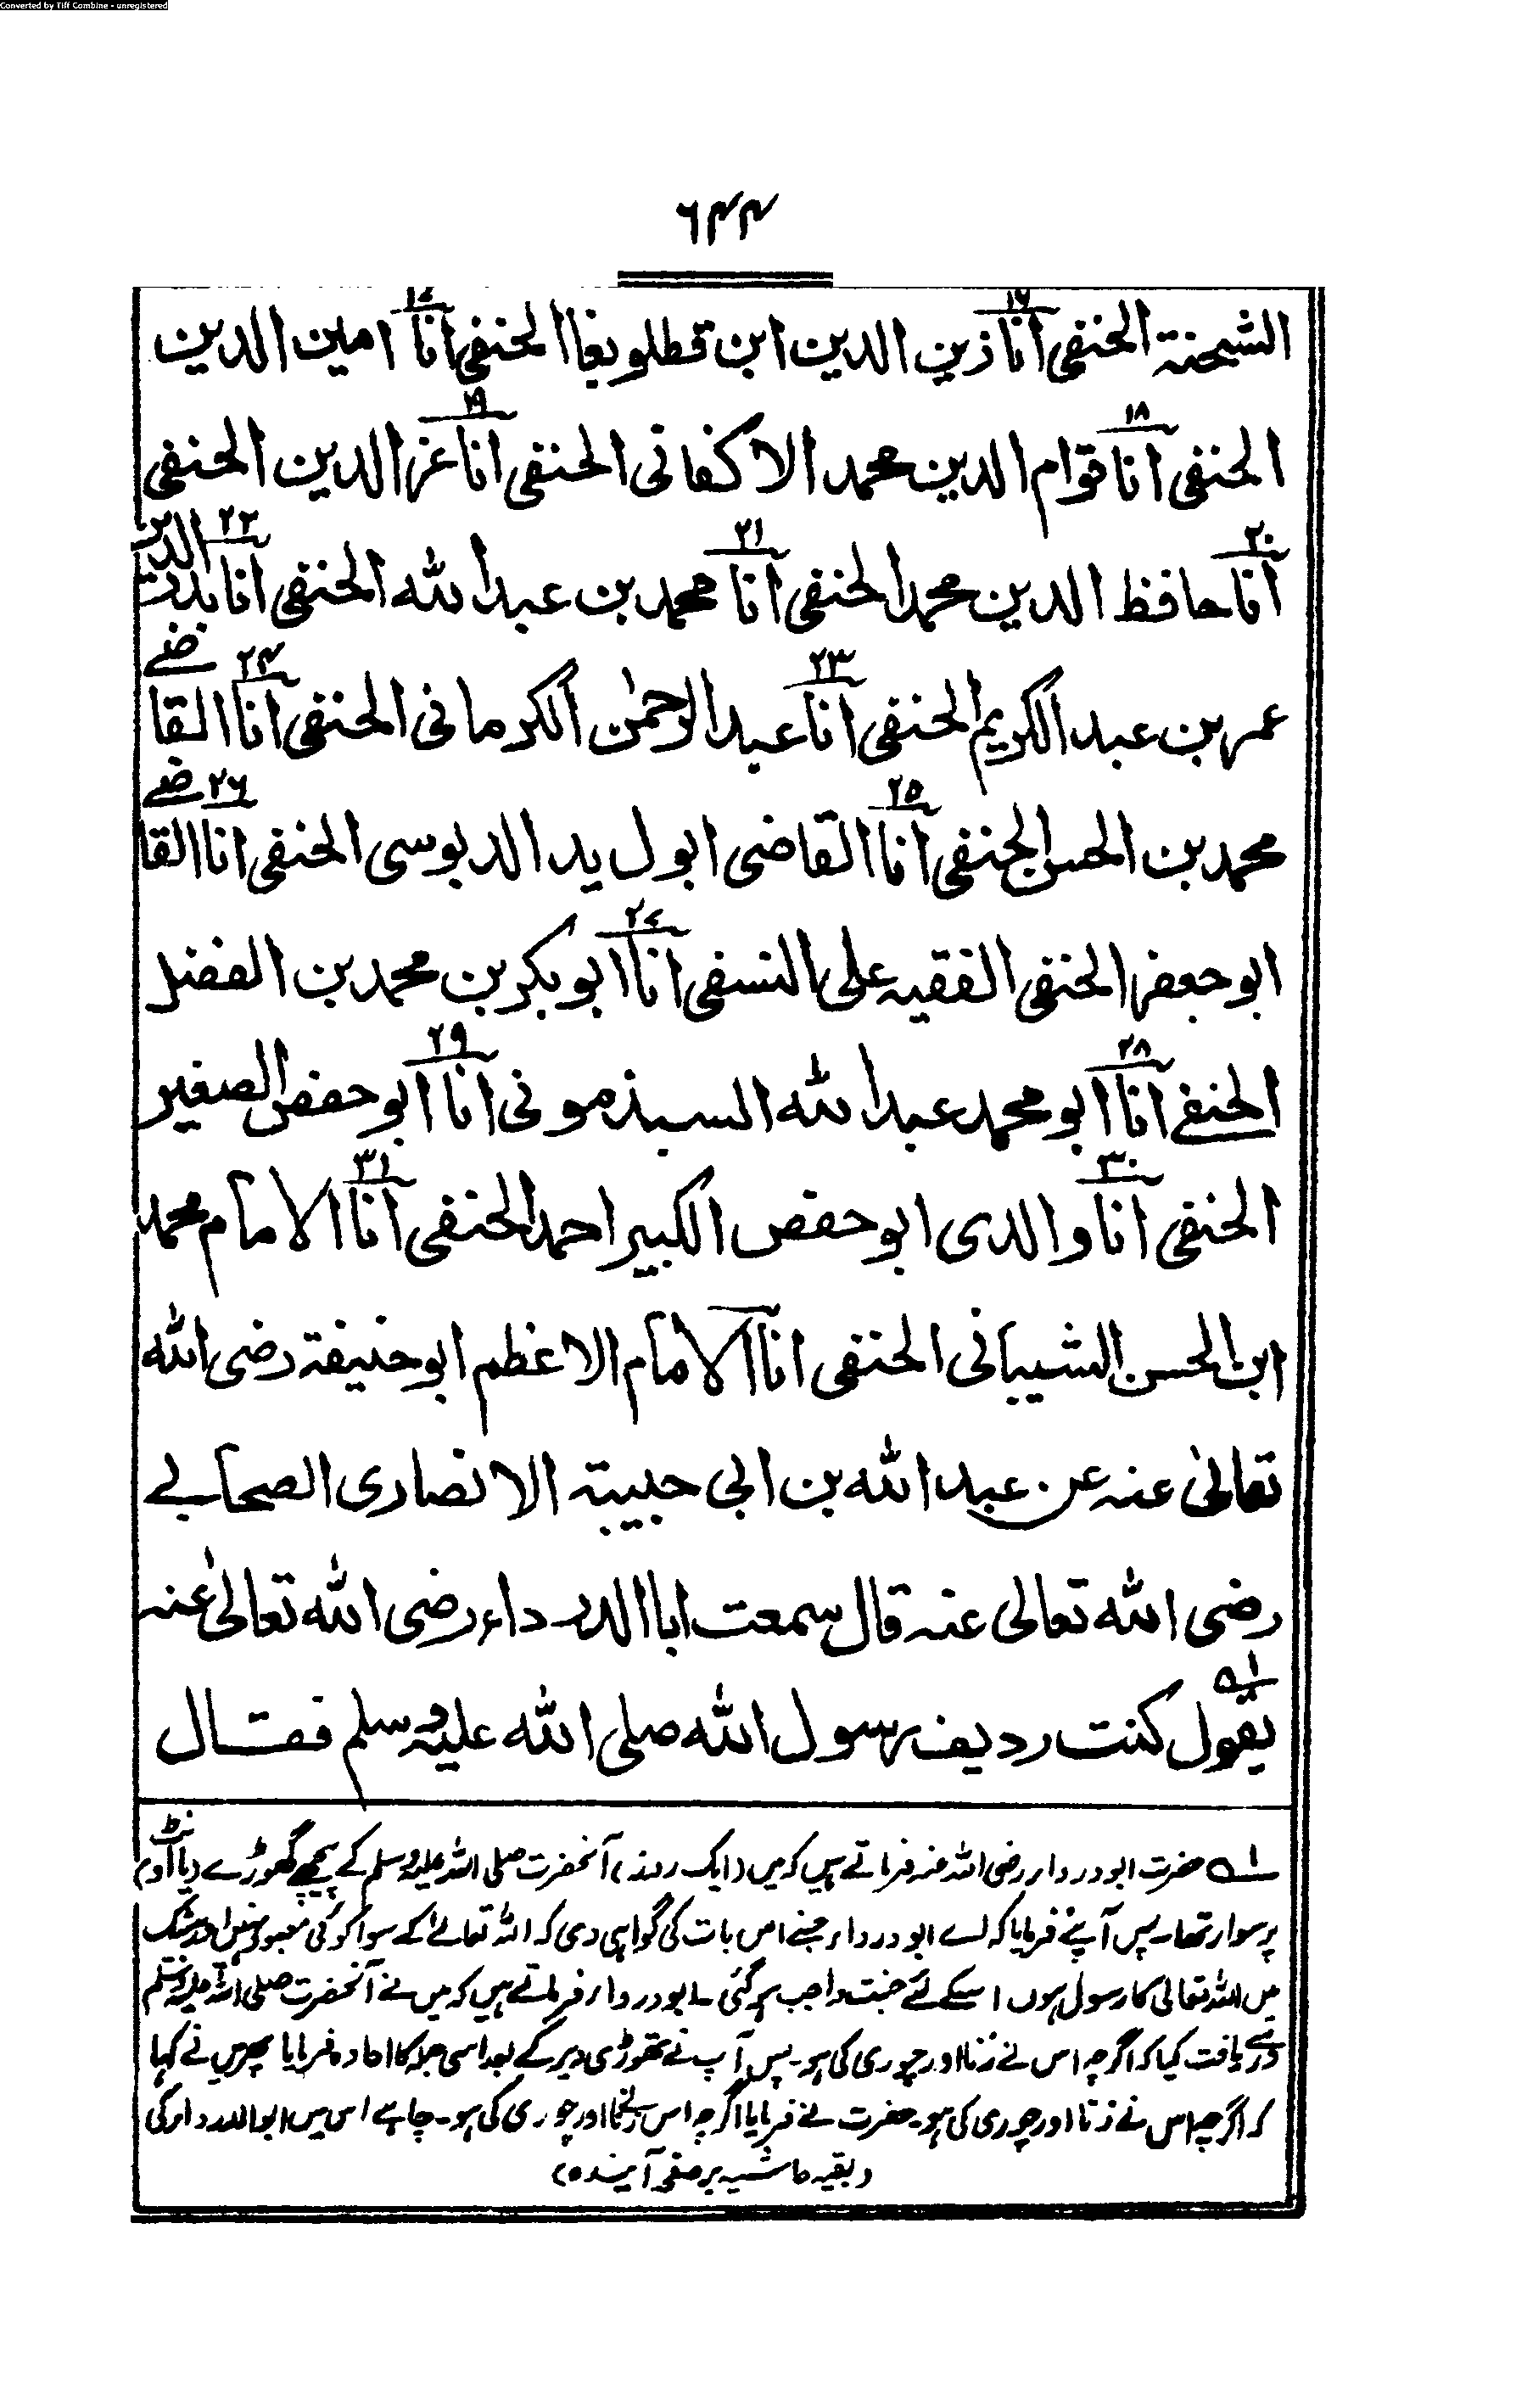 Converted by Tiff Combine - unregistered
٦٤٤
الشحنة الحنفى انا ١٦ زين الدين ابن قطلوبغا الحنفى انا ١٧ امين الدين
الحنفى انا ١٨ قوام الدين محمد الاكفانى الحنفى انا ١٩ عز الدين الحنفى
٢٠ انا حافظ الدين محمد الحنفى انا ٢١ محمد بن عبد الله الحنفى انا ٢٢ بدر الدين
عمر بن عبد الكريم الحنفى انا ٢٣ عبد الرحمٰن الكرمانى الحنفى انا ٢٤ القاضے
محمد بن الحسن الحنفى انا ٢٥ القاضى ابو ل يد الدبوسى الحنفى انا ٢٦ القاضے
ابو جعفر الحنفى الفقيه على النسفى انا ٢٧ ابو بكر بن محمد بن الفضل
الحنفے انا ٢٨ ابو محمد عبد الله السبذمونى انا ٢٩ ابو حفص الصغير
الحنفى انا ٣٠ والدى ابو حفص الكبير احمد الحنفى انا ٣١ الامام محمد
ابن الحسن الشيبانى الحنفى انا الامام الاعظم ابو حنيفة رضى الله
تعالىٰ عنه عن عبد الله بن ابى حبيبة الانصارى الصحابے
رضى الله تعالى عنه قال سمعت ابا الدرداء رضى الله تعالىٰ عنه
يقول ؁١ كنت رديف رسول الله صلى الله عليه وسلم فقال
؁١ حضرت ابودرداء رضی اللہ عنہ فرماتے ہیں کہ میں (ایک روز) آنحضرت صلی اللہ علیہ وسلم کے پیچھے گھوڑے (یا اونٹ)
پر سوار تھا۔ پس آپنے فرمایا کہ اے ابودرداء جسنے اس بات کی گواہی دی کہ اللہ تعالےٰ کے سوا کوئی معبود نہیں اور بیشک
میں اللہ تعالی کا رسول ہوں اسکے لئے جنت واجب ہوگئی۔ ابودرداء فرماتے ہیں کہ میں نے آنحضرت صلی اللہ علیہ وسلم
سے دریافت کیا کہ اگرچہ اس نے زنا اور چوری کی ہو۔ پس آپ نے تھوڑی دیر کے بعد اسی جملہ کا اعادہ فرمایا پھر میں نے کہا
کہ اگرچہ اس نے زنا اور چوری کی ہو۔ حضرت نے فرمایا اگرچہ اس نے زنا اور چوری کی ہو۔ چاہے اس میں ابوالدرداء کی
(بقیہ حاشیہ بر صفحہ آیندہ)